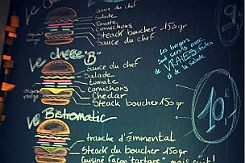 Sauce du chef
Salade
Tomate
Cornichons
Steack boucher 150gr
Le cheese "B"
Sauce du chef
Salade
Tomate
Cornichons
Chedar
Steack boucher 150gr
Le Bistromatic
tranche d'emmental
Steack du boucher 150gr
Cuisiné façon "tartare"
Les burgers
sont servis avec
de VRAIES frites
et de la salade
10